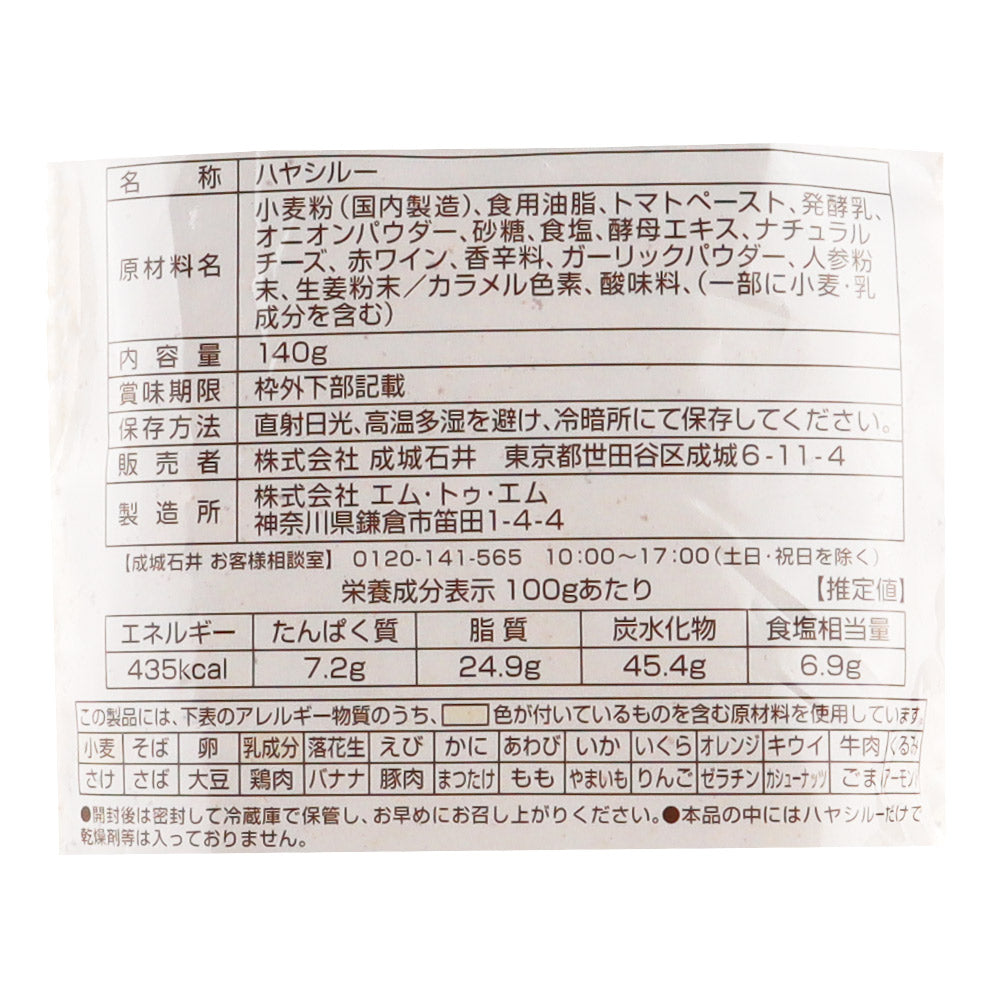 名称 ハヤシルー
原材料名 小麦粉(国内製造)、食用油脂、トマトペースト、発酵乳、
オニオンパウダー、砂糖、食塩、酵母エキス、ナチュラル
チーズ、赤ワイン、香辛料、ガーリックパウダー、人参粉
末、生姜粉末/カラメル色素、酸味料、(一部に小麦・乳
成分を含む)
内容量 140g
賞味期限 枠外下部記載
保存方法 直射日光、高温多湿を避け、冷暗所にて保存してください。
販売者 株式会社 成城石井 東京都世田谷区成城6-11-4
製造所 株式会社 エム・トゥ・エム
神奈川県鎌倉市笛田1-4-4
【成城石井 お客様相談室】 0120-141-565 10:00〜17:00(土日・祝日を除く)
栄養成分表示 100gあたり 【推定値】
エネルギー たんぱく質 脂質 炭水化物 食塩相当量
435kcal 7.2g 24.9g 45.4g 6.9g
この製品には、下表のアレルギー物質のうち、 色が付いているものを含む原材料を使用しています。
小麦 そば 卵 乳成分 落花生 えび かに あわび いか いくら オレンジ キウイ 牛肉 くるみ
さけ さば 大豆 鶏肉 バナナ 豚肉 まつたけ もも やまいも りんご ゼラチン カシューナッツ ごま アーモンド
●開封後は密封して冷蔵庫で保管し、お早めにお召し上がりください。●本品の中にはハヤシルーだけで
乾燥剤等は入っておりません。